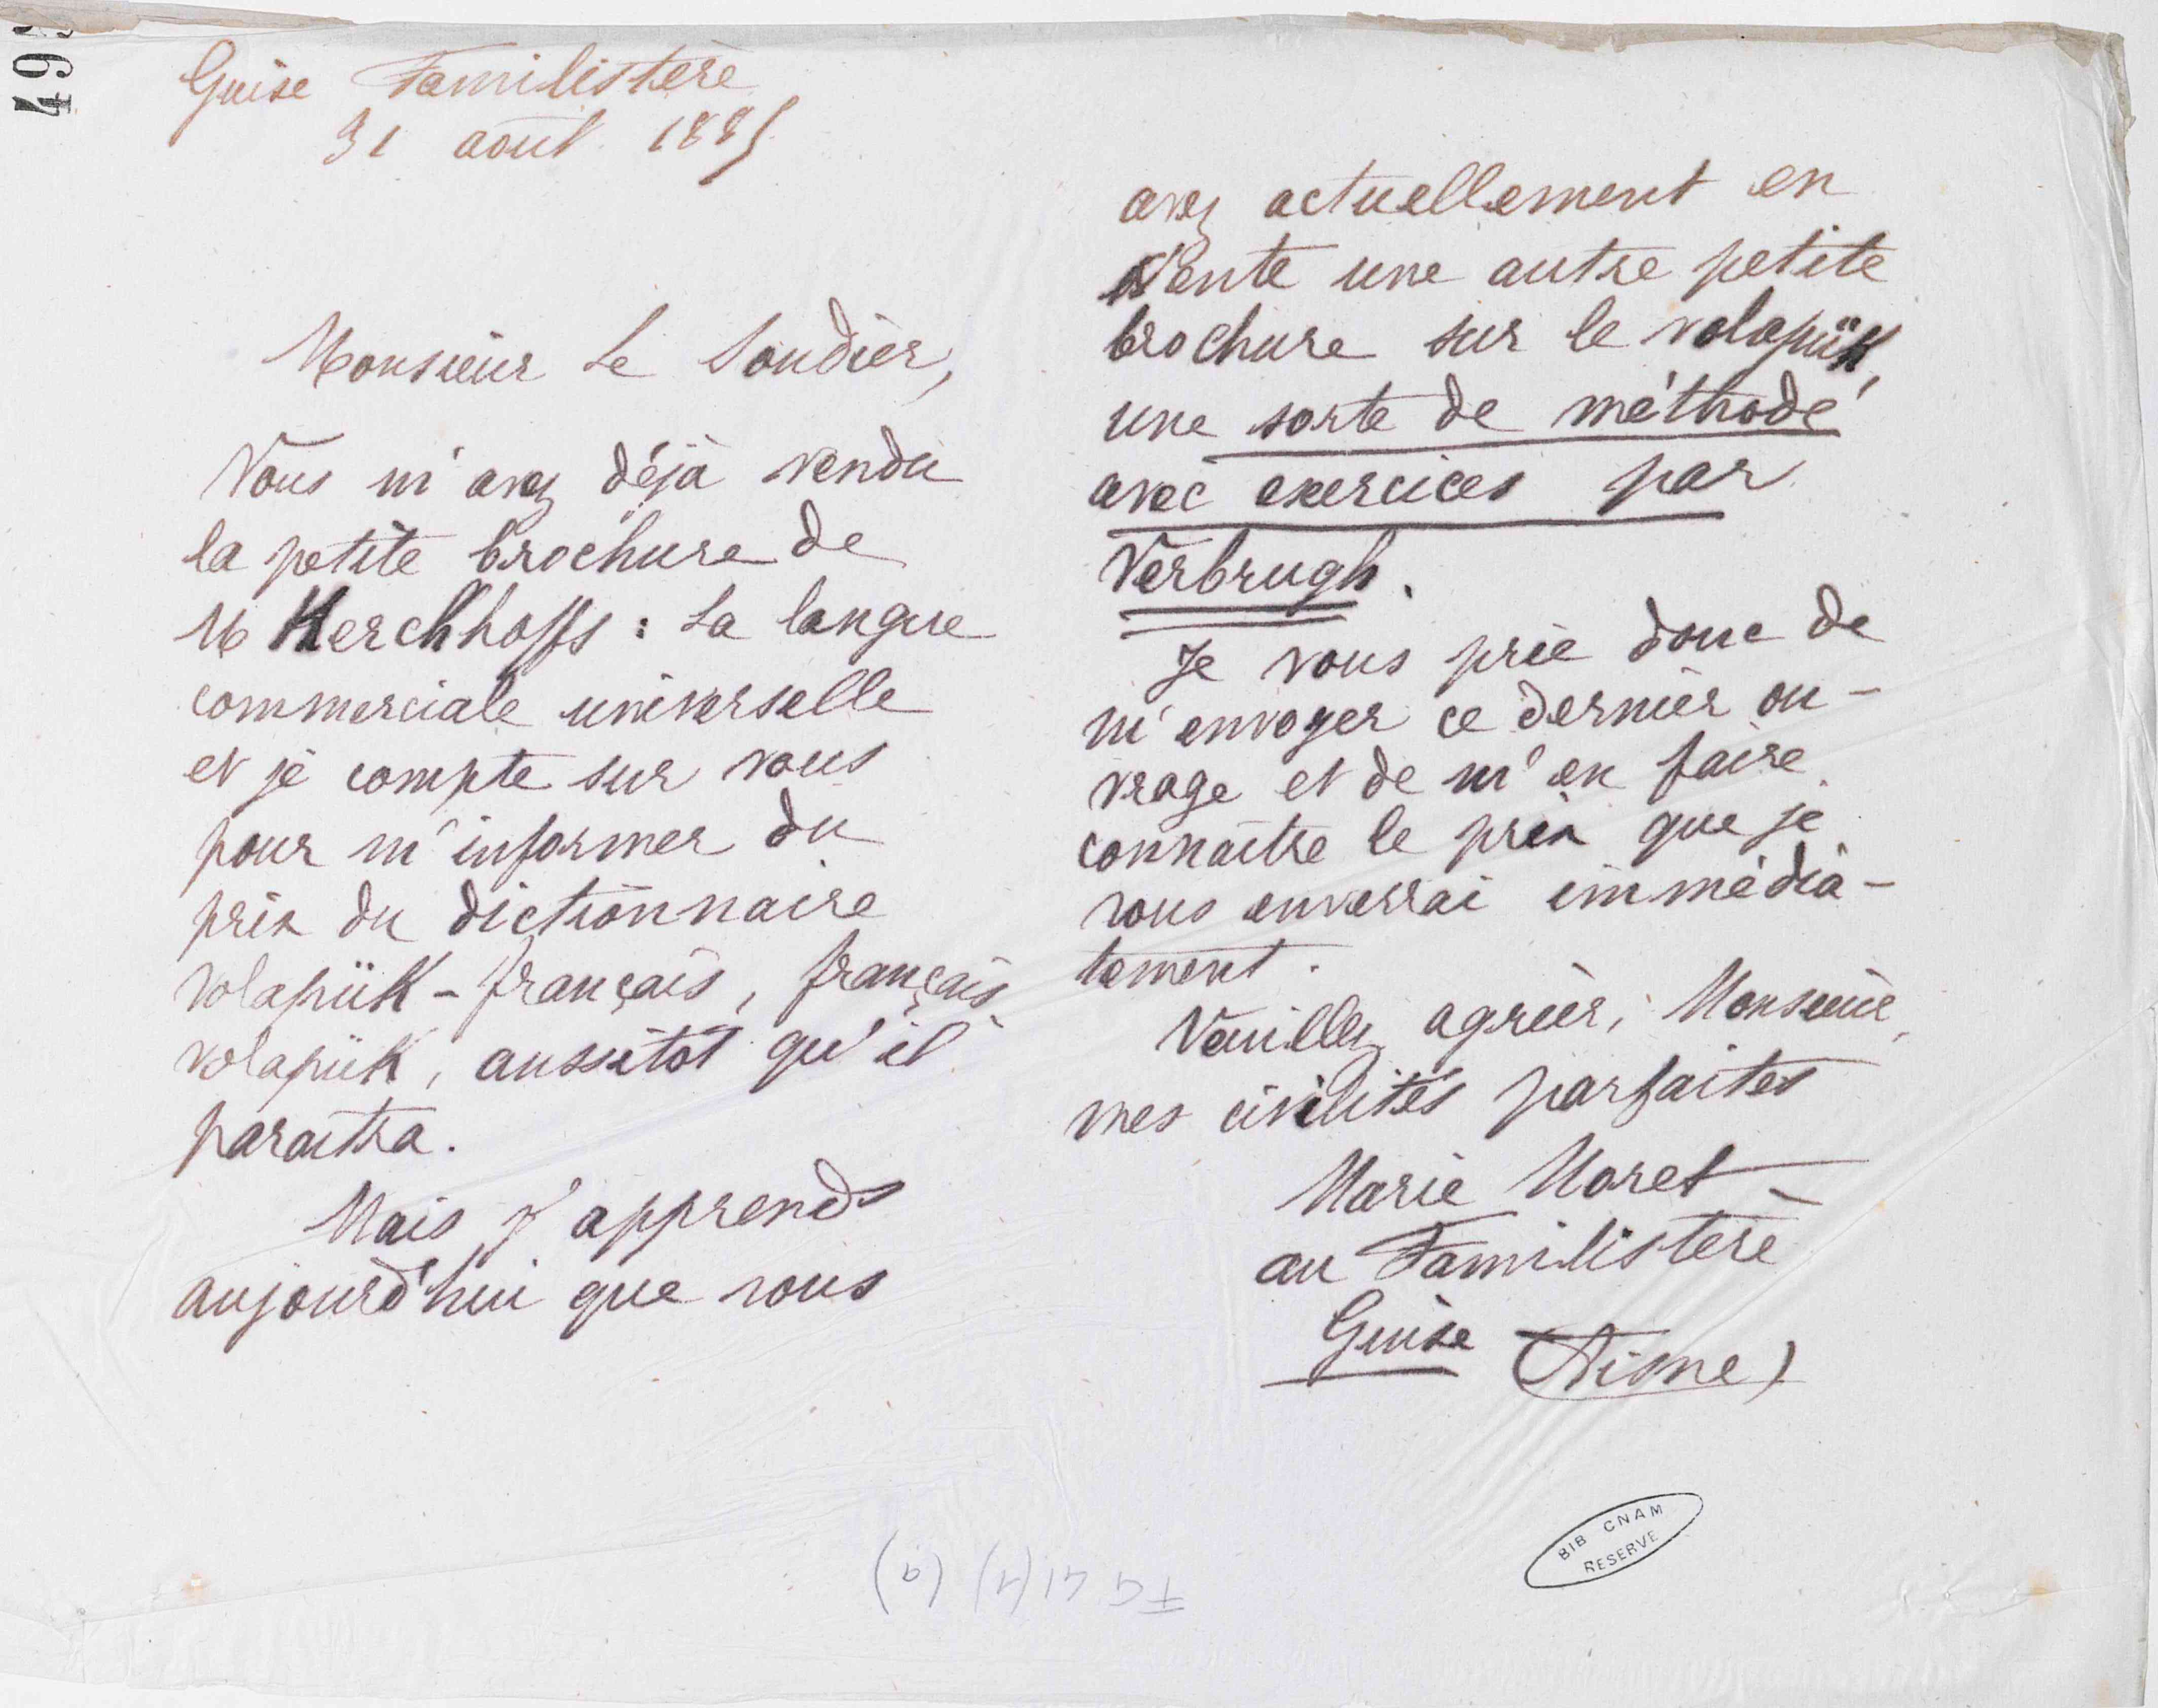 499
Guise Familistère
31 août 1885
Monsieur Le Soudier,
Vous m'avez déjà vendu
la petite brochure de
M Kerchhoffs : La langue
commerciale universelle
et je compte sur vous
pour m'informer du
prix du dictionnaire
volapük - français, français
volapük, aussitôt qu'il
paraîtra.
Mais j'apprends
aujourd'hui que vous
avez actuellement en
vente une autre petite
brochure sur le volapük,
une sorte de méthode
avec exercices par
Verbrugh.
Je vous prie donc de
m'envoyer ce dernier ou-
vrage et de m'en faire
connaître le prix que je
vous enverrai immédia-
tement.
Veuillez agréer, Monsieur,
mes civilités parfaites
Marie Moret
au Familistère
Guise (Aisne)
BIB CNAM
RESERVE
FG 41 (4) (a)